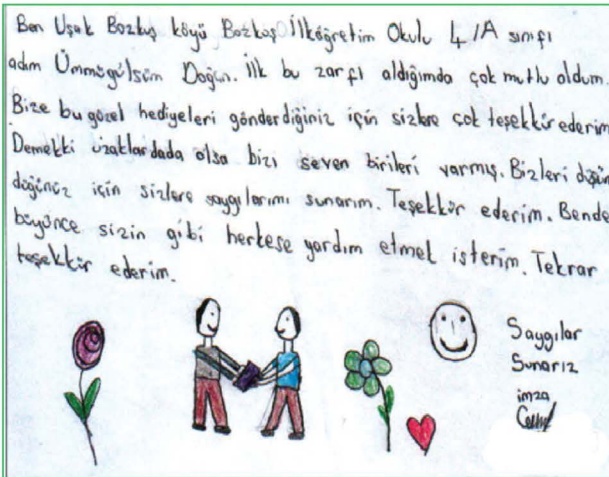 Ben Uşak Bozkuş köyü Bozkuş İlköğretim Okulu 4/A sınıfı
adım Ümmügülsüm Doğan. İlk bu zarfı aldığımda çok mutlu oldum.
Bize bu güzel hediyeleri gönderdiğiniz için sizlere çok teşekkür ederim
Demekki uzaklardada olsa bizi seven birileri varmış. Bizleri düşün
düğünüz için sizlere saygılarımı sunarım. Teşekkür ederim. Bende
büyünce sizin gibi herkese yardım etmek isterim. Tekrar
teşekkür ederim.
Saygılar
Sunarız
imza